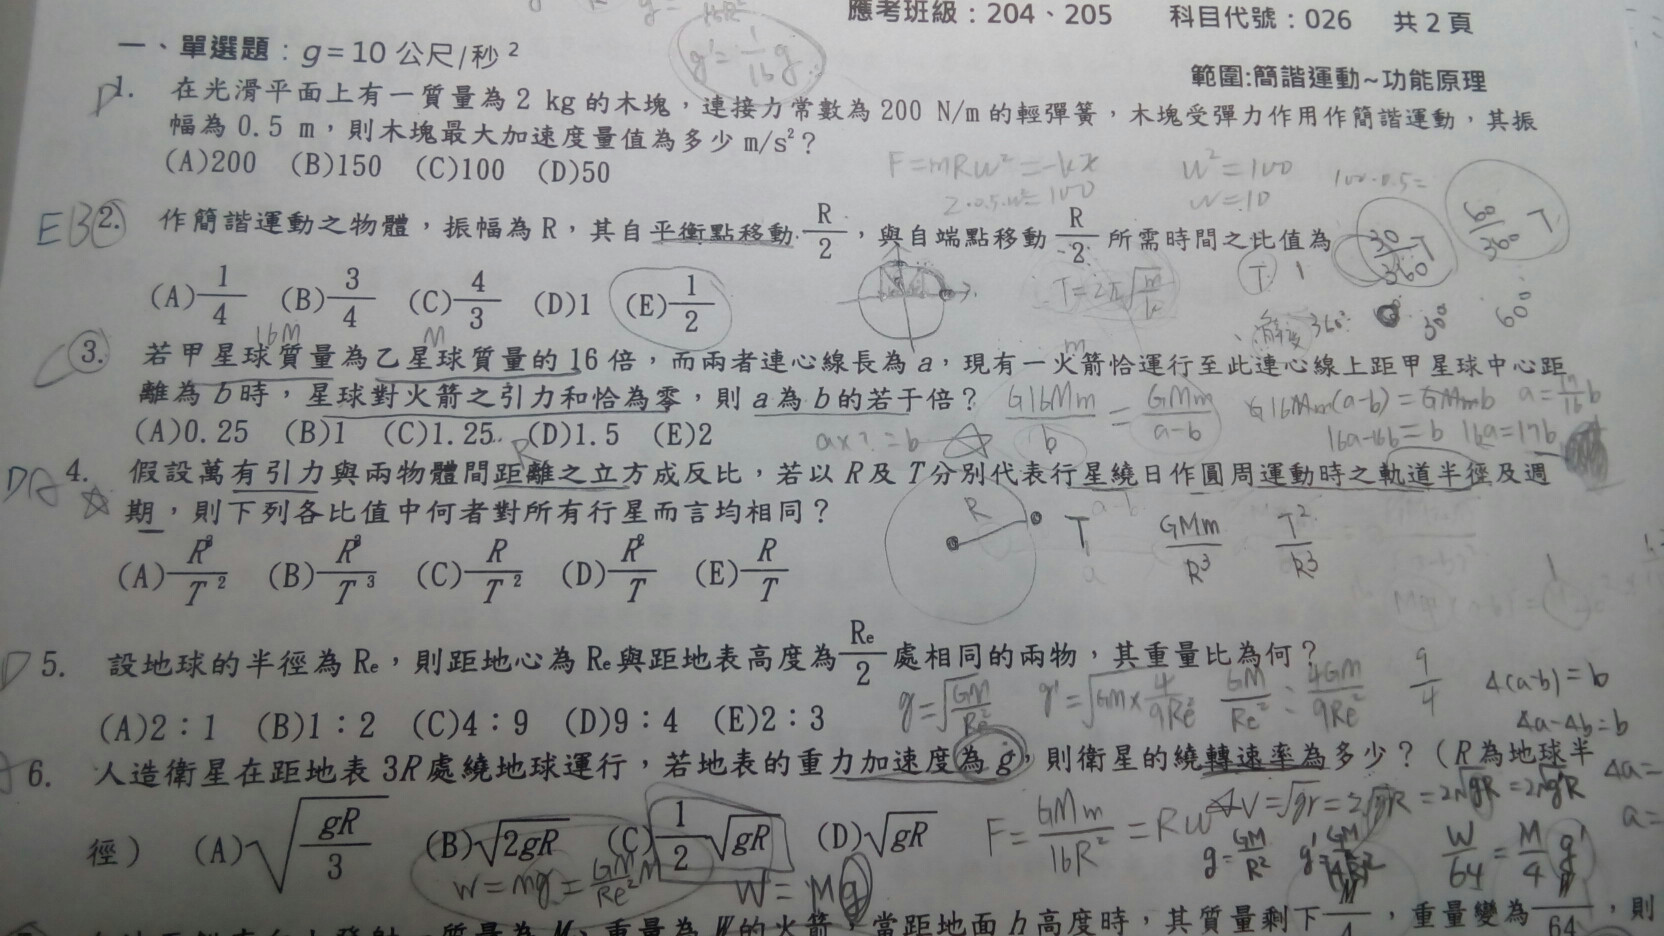 應考班級：204、205 科目代號：026 共2頁
一、單選題：g=10 公尺/秒²
g'=1/16 g
範圍:簡諧運動~功能原理
D 1. 在光滑平面上有一質量為 2 kg 的木塊，連接力常數為 200 N/m 的輕彈簧，木塊受彈力作用作簡諧運動，其振
幅為 0.5 m，則木塊最大加速度量值為多少 m/s²？
(A)200 (B)150 (C)100 (D)50
F=mRω²=-kx ω²=100 100·0.5=
2·0.5·ω²=100 ω=10
EB 2. 作簡諧運動之物體，振幅為 R，其自平衡點移動 R/2，與自端點移動 R/2 所需時間之比值為
30/360 T 60/360 T
(A)1/4 (B)3/4 (C)4/3 (D)1 (E)1/2
T=2π√(m/k) T 1
360° 30° 60°
16M M m
3. 若甲星球質量為乙星球質量的 16 倍，而兩者連心線長為 a，現有一火箭恰運行至此連心線上距甲星球中心距
離為 b 時，星球對火箭之引力和恰為零，則 a 為 b 的若干倍？
G16Mm/b = GMm/a-b G16Mm(a-b)=GMmb a=17/16 b
(A)0.25 (B)1 (C)1.25 (D)1.5 (E)2
ax?=b 16a-16b=b 16a=17b
R
DA 4. 假設萬有引力與兩物體間距離之立方成反比，若以 R 及 T 分別代表行星繞日作圓周運動時之軌道半徑及週
期，則下列各比值中何者對所有行星而言均相同？
R T GMm/R³ T²/R³
(A)R³/T² (B)R³/T³ (C)R/T² (D)R²/T (E)R/T
D 5. 設地球的半徑為 Re，則距地心為 Re 與距地表高度為 Re/2 處相同的兩物，其重量比為何？
(A)2：1 (B)1：2 (C)4：9 (D)9：4 (E)2：3
g=√(GM/Re²) g'=√(GM×4/9Re²) GM/Re² : 4GM/9Re² 9/4
4(a-b)=b
4a-4b=b
4a=
a=
6. 人造衛星在距地表 3R 處繞地球運行，若地表的重力加速度為 g，則衛星的繞轉速率為多少？（R 為地球半
徑） (A)√(gR/3) (B)√2gR (C)1/2 √gR (D)√gR
F=GMm/16R²=Rω² V=√gr=2√gR=2√gR=2√g'R
g=GM/R² W/64=M/4 g'
W=mg=GM/Re² M W=Mg
當距地面 h 高度時，其質量剩下 M/4，重量變為 W/64，則